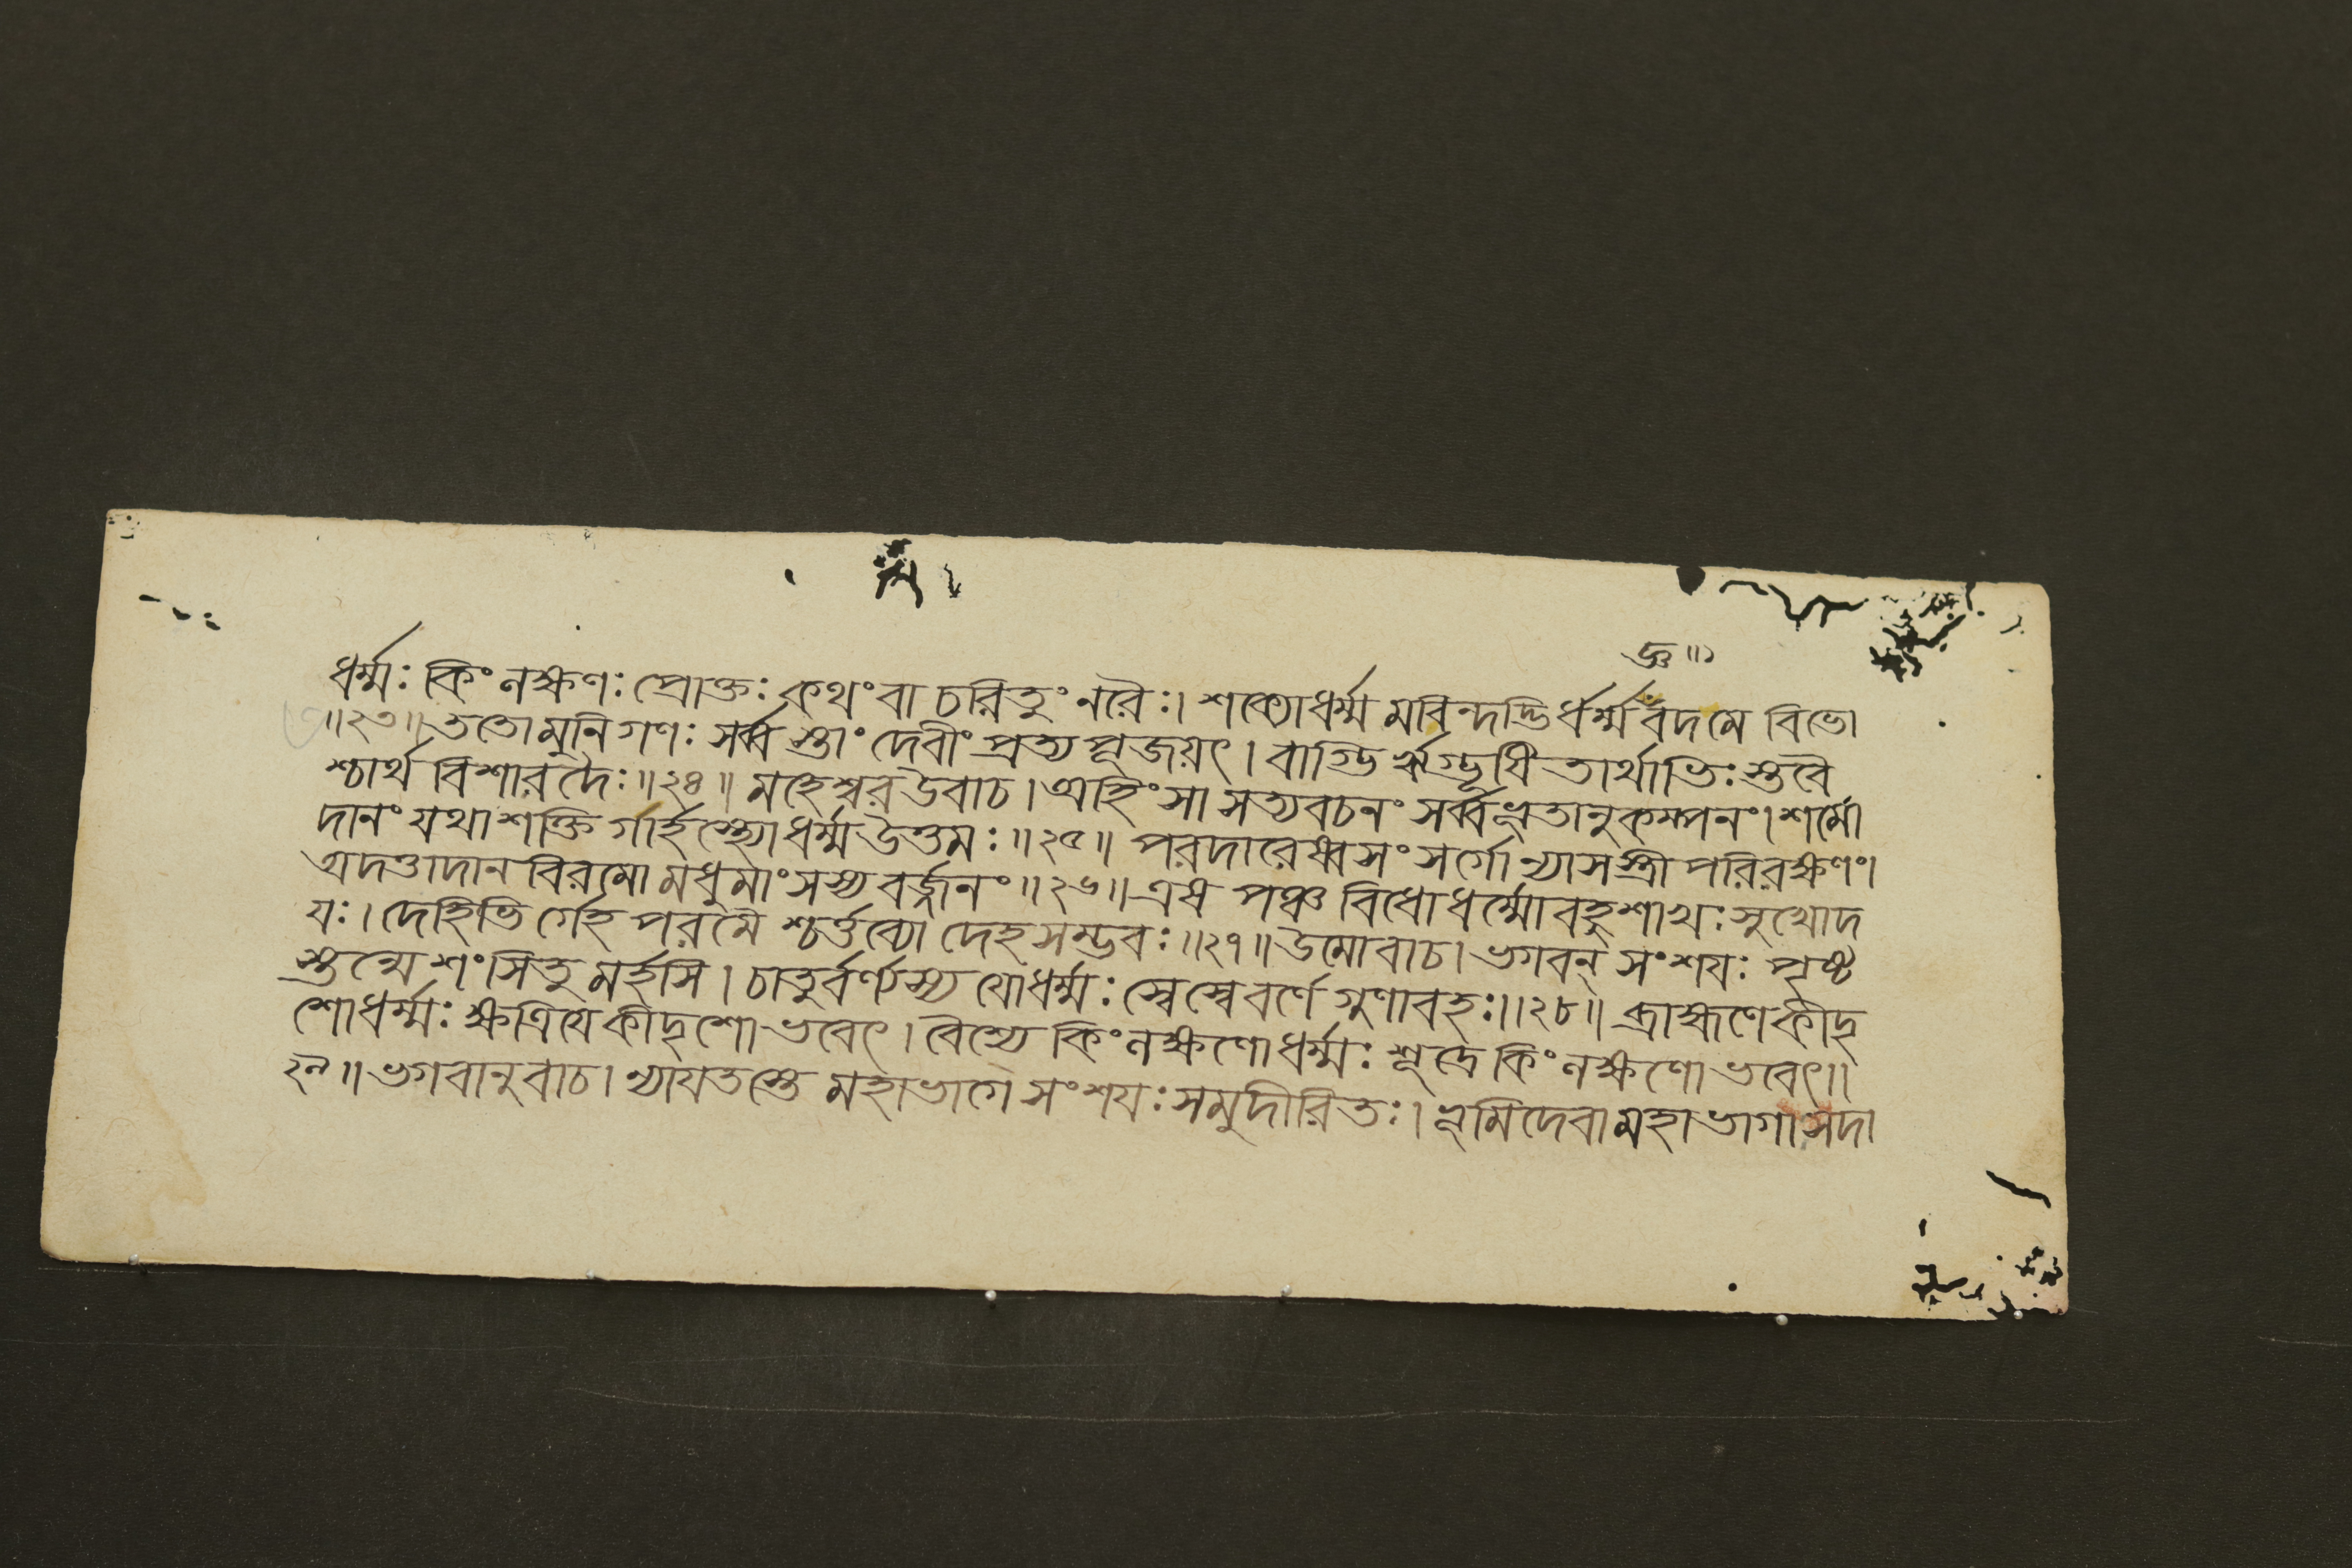 ধর্ম্মঃ কিং লক্ষণঃ প্রোক্তঃ কথং বা চরিতুং নরৈঃ। শক্যোধর্ম্ম মবিন্দদ্ভি র্ধর্ম্মং বদ মে বিভো
॥২৩॥ ততো মুনি গণঃ সর্ব্ব স্তাং দেবীং প্রত্য পূজয়ৎ। বাগ্ভি র্ঋগ্ভূষি তার্থাভিঃ স্তবৈ
শ্চার্থ বিশারদৈঃ॥২৪॥ মহেশ্বর উবাচ। অহিংসা সত্যবচনং সর্ব্বভূতানুকম্পনং। শমো
দানং যথা শক্তি গার্হস্থ্যো ধর্ম্ম উত্তমঃ॥২৫॥ পরদারেষ্বসংসর্গো ন্যাসস্ত্রী পরিরক্ষণং।
অদত্তাদান বিরমো মধুমাংসস্য বর্জ্জনং॥২৬॥ এষ পঞ্চ বিধো ধর্ম্মো বহুশাখঃ সুখোদ
যঃ। দেহিভি র্দেহ পরমৈ শ্চর্ত্তব্যো দেহ সম্ভবঃ॥২৭॥ উমোবাচ। ভগবন্ সংশযঃ পৃষ্ট
স্তন্মে শংসিতু মর্হসি। চাতুর্বর্ণ্যস্য যোধর্ম্মঃ স্বেস্বেবর্ণে গুণাবহঃ॥২৮॥ ব্রাহ্মণে কীদৃ
শোধর্ম্মঃ ক্ষত্রিযে কীদৃশো ভবেৎ। বৈশ্যে কিং লক্ষণো ধর্ম্মঃ শূদ্রে কিং লক্ষণো ভবেৎ॥
২৯॥ ভগবানুবাচ। ন্যাযতস্তে মহাভাগে সংশযঃ সমুদীরিতঃ। ভূমিদেবা মহাভাগাঃ সদা